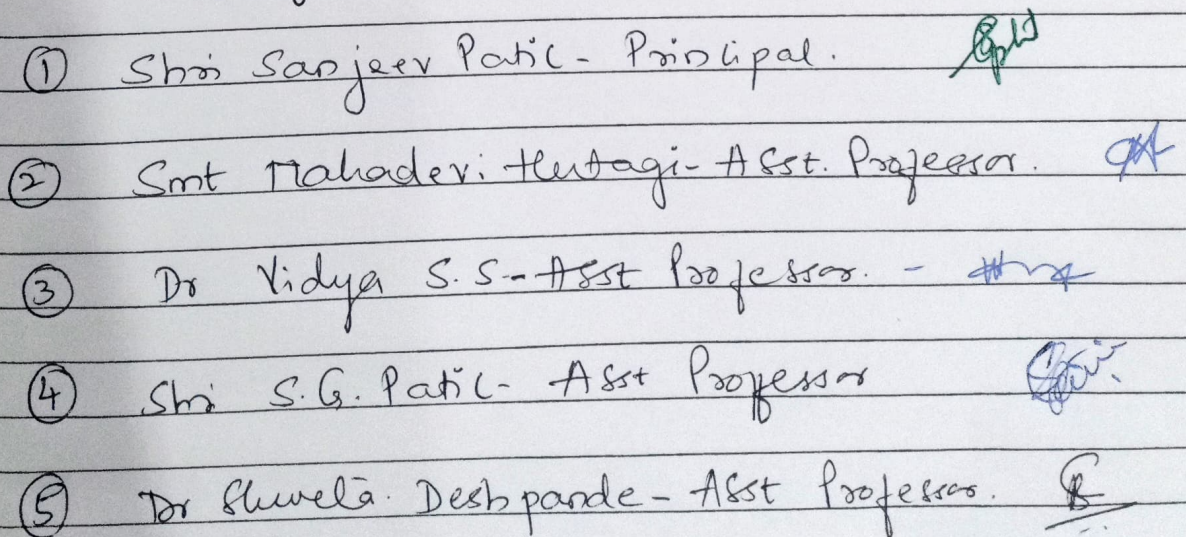 ① Shri Sanjeev Patil - Principal.
② Smt Mahadevi Hutagi - Asst. Professor.
③ Dr Vidya S.S - Asst Professor. -
④ Shri S.G. Patil - Asst Professor
⑤ Dr Shweta. Deshpande - Asst Professor.